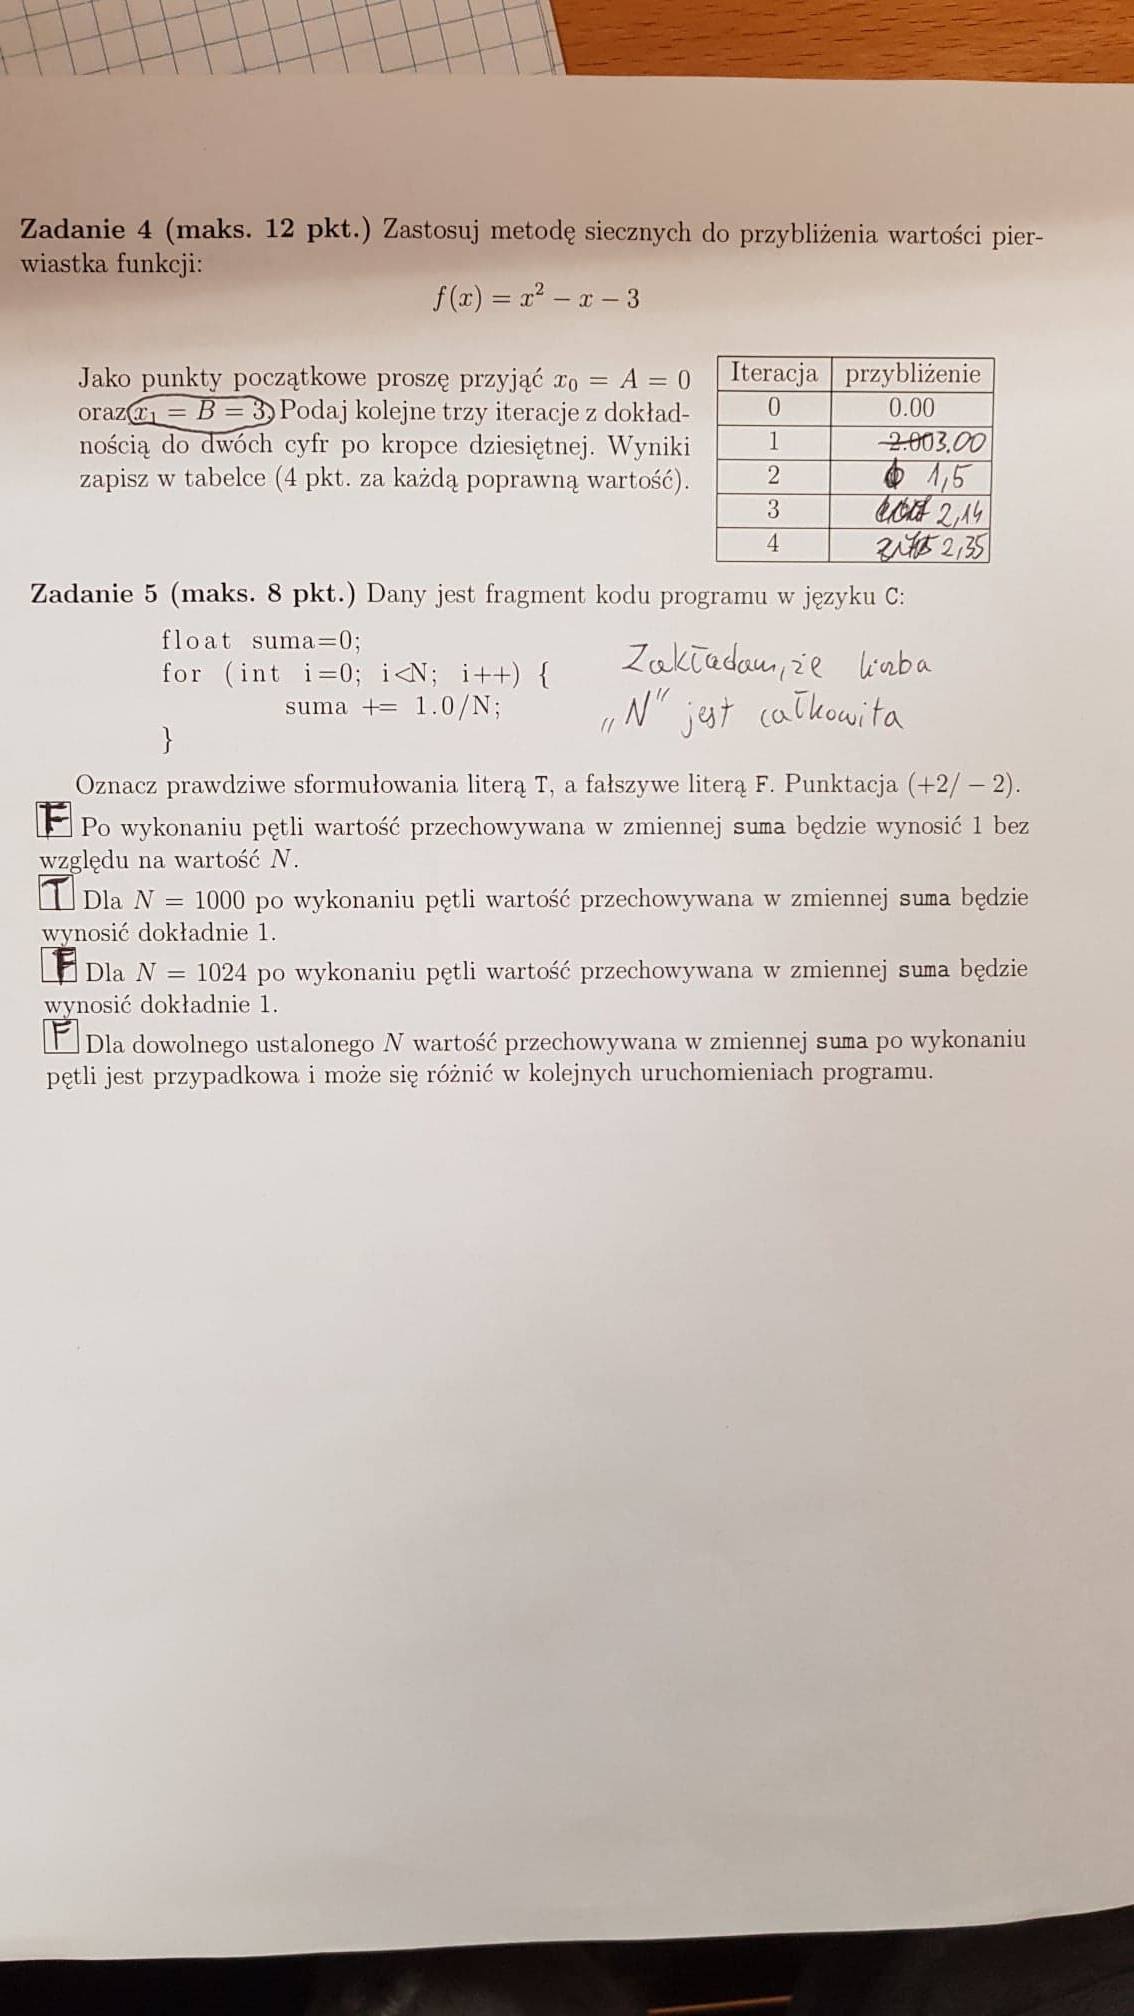 Zadanie 4 (maks. 12 pkt.) Zastosuj metodę siecznych do przybliżenia wartości pier-
wiastka funkcji:
f(x) = x² − x − 3
Jako punkty początkowe proszę przyjąć x₀ = A = 0
oraz x₁ = B = 3. Podaj kolejne trzy iteracje z dokład-
nością do dwóch cyfr po kropce dziesiętnej. Wyniki
zapisz w tabelce (4 pkt. za każdą poprawną wartość).
Iteracja przybliżenie
0 0.00
1 2.00 3,00
2 1,5
3 2,14
4 2,35
Zadanie 5 (maks. 8 pkt.) Dany jest fragment kodu programu w języku C:
float suma=0;
for (int i=0; i<N; i++) {
suma += 1.0/N;
}
Zakładam, że liczba
„N" jest całkowita
Oznacz prawdziwe sformułowania literą T, a fałszywe literą F. Punktacja (+2/ − 2).
F Po wykonaniu pętli wartość przechowywana w zmiennej suma będzie wynosić 1 bez
względu na wartość N.
T Dla N = 1000 po wykonaniu pętli wartość przechowywana w zmiennej suma będzie
wynosić dokładnie 1.
F Dla N = 1024 po wykonaniu pętli wartość przechowywana w zmiennej suma będzie
wynosić dokładnie 1.
F Dla dowolnego ustalonego N wartość przechowywana w zmiennej suma po wykonaniu
pętli jest przypadkowa i może się różnić w kolejnych uruchomieniach programu.